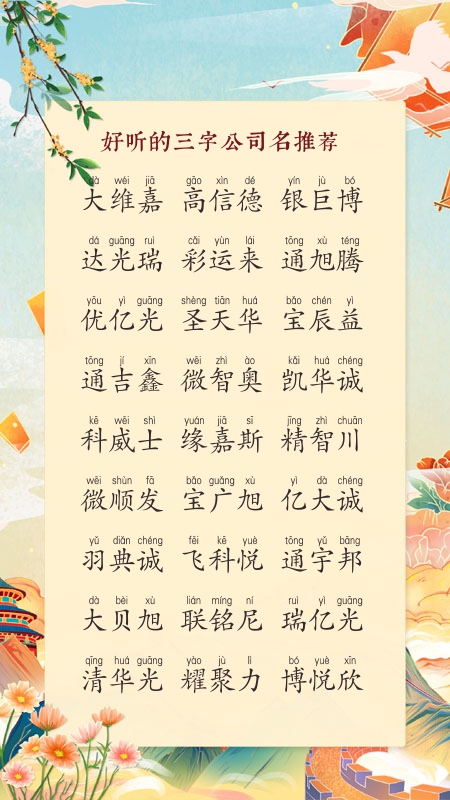 好听的三字公司名推荐
dà wéi jiā gāo xìn dé yín jù bó
大维嘉 高信德 银巨博
dá guāng ruì cǎi yùn lái tōng xù téng
达光瑞 彩运来 通旭腾
yōu yì guāng shèng tiān huá bǎo chén yì
优亿光 圣天华 宝辰益
tōng jí xīn wēi zhì ào kǎi huá chéng
通吉鑫 微智奥 凯华诚
kē wēi shì yuán jiā sī jīng zhì chuān
科威士 缘嘉斯 精智川
wēi shùn fā bǎo guǎng xù yì dà chéng
微顺发 宝广旭 亿大诚
yǔ diǎn chéng fēi kē yuè tōng yǔ bāng
羽典诚 飞科悦 通宇邦
dà bèi xù lián míng ní ruì yì guāng
大贝旭 联铭尼 瑞亿光
qīng huá guāng yào jù lì bó yuè xīn
清华光 耀聚力 博悦欣